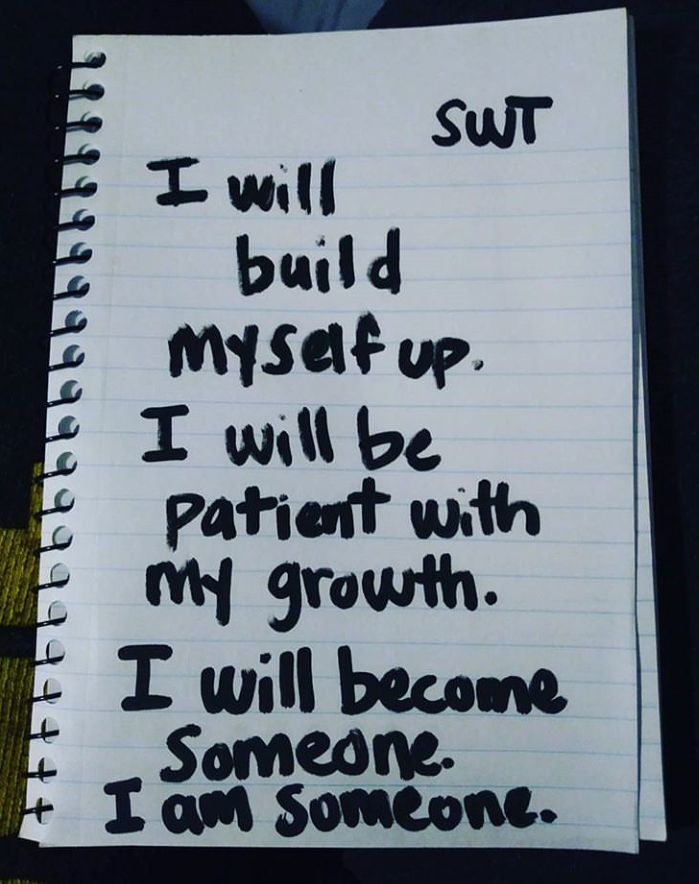 SWT
I will
build
myself up.
I will be
patient with
my growth.
I will become
someone.
I am someone.